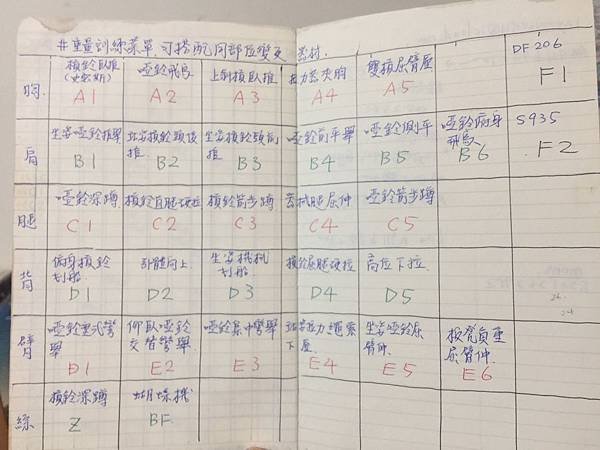 #重量訓練菜單.可搭配同部位變更 器材.
胸. 槓鈴臥推 啞鈴飛鳥 上斜槓臥推 拉力器夾胸 雙槓屈臂屋 DF206
(史密斯)
A1 A2 A3 A4 A5 F1
肩 坐姿啞鈴推舉 站姿槓鈴頸後推 坐姿槓鈴頸前推 啞鈴前平舉 啞鈴側平 啞鈴俯身飛鳥 5935
B1 B2 B3 B4 B5 B6 F2
腿 啞鈴深蹲 槓鈴直腿硬拉 槓鈴箭步蹲 腿屈伸 啞鈴箭步蹲
C1 C2 C3 C4 C5
背 俯身槓鈴划船 引體向上 坐姿 划船 槓鈴屈腿硬拉 高位下拉.
D1 D2 D3 D4 D5
臂 啞鈴 式彎舉 仰臥啞鈴交替彎舉 啞鈴集中彎舉 站姿拉力繩索下屋 坐姿啞鈴屈臂伸. 板凳負重屈臂伸.
D1 E2 E3 E4 E5 E6
綜 槓鈴深蹲 蝴蝶機
Z BF